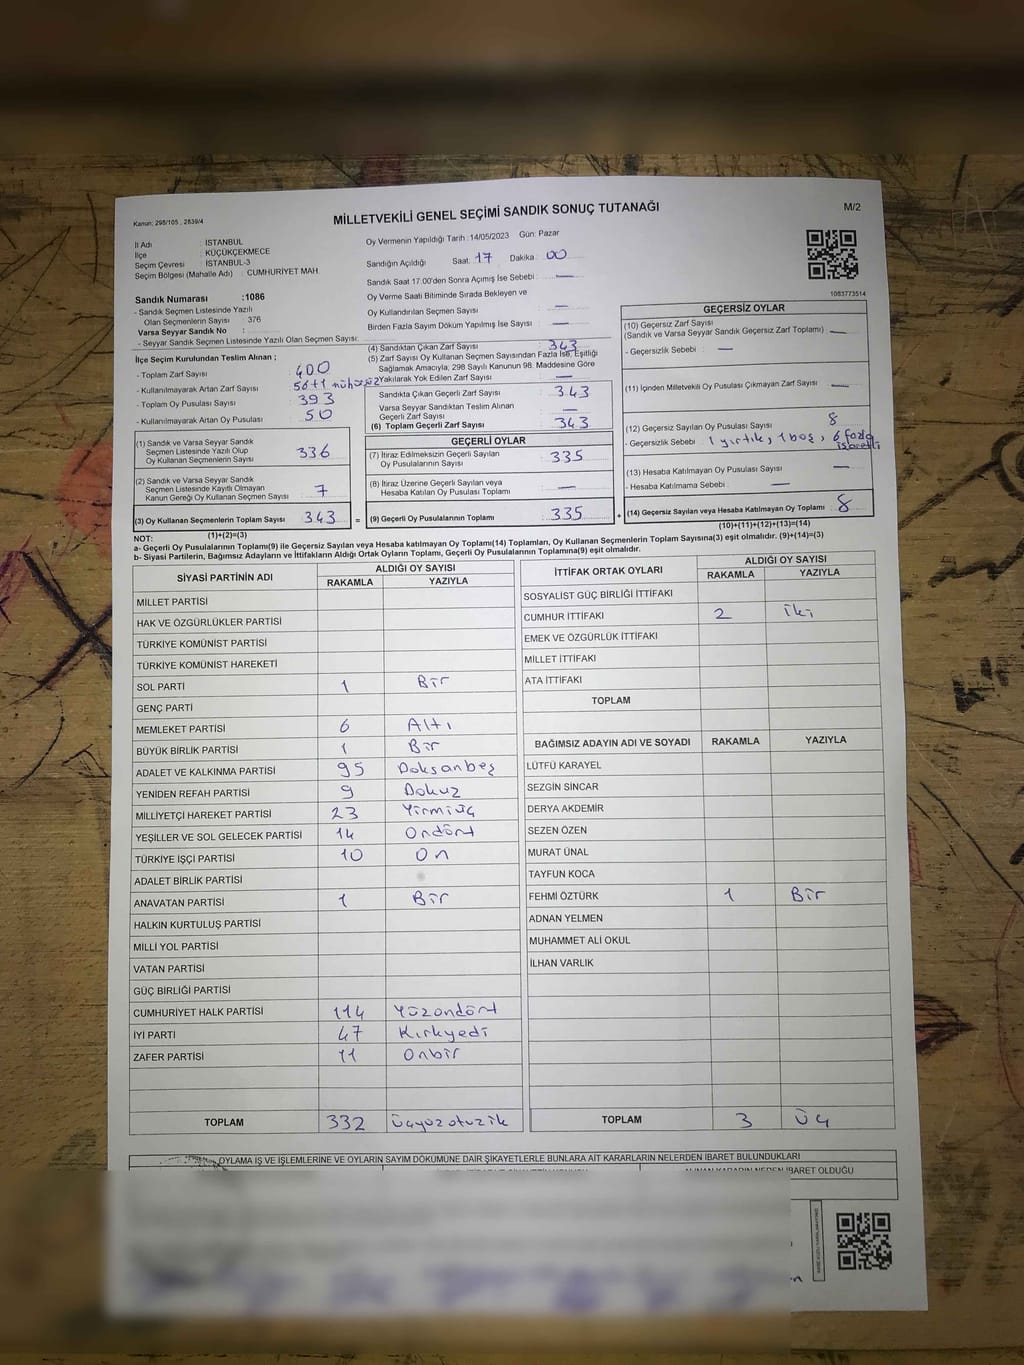 Kanun: 298/105 , 2839/4
MİLLETVEKİLİ GENEL SEÇİMİ SANDIK SONUÇ TUTANAĞI
M/2
İl Adı : İSTANBUL
İlçe : KÜÇÜKÇEKMECE
Seçim Çevresi : İSTANBUL-3
Seçim Bölgesi (Mahalle Adı) : CUMHURİYET MAH.
Sandık Numarası :1086
- Sandık Seçmen Listesinde Yazılı
Olan Seçmenlerin Sayısı : 376
Varsa Seyyar Sandık No :
- Seyyar Sandık Seçmen Listesinde Yazılı Olan Seçmen Sayısı:
Oy Vermenin Yapıldığı Tarih : 14/05/2023 Gün: Pazar
Sandığın Açıldığı Saat: 17 Dakika: 00
Sandık Saat 17.00'den Sonra Açımış İse Sebebi : —
Oy Verme Saati Bitiminde Sırada Bekleyen ve
Oy Kullandırılan Seçmen Sayısı : —
Birden Fazla Sayım Döküm Yapılmış İse Sayısı : —
1083773514
İlçe Seçim Kurulundan Teslim Alınan ;
- Toplam Zarf Sayısı : 400
- Kullanılmayarak Artan Zarf Sayısı : 56+1 mühürsüz
- Toplam Oy Pusulası Sayısı : 393
- Kullanılmayarak Artan Oy Pusulası : 50
(1) Sandık ve Varsa Seyyar Sandık
Seçmen Listesinde Yazılı Olup
Oy Kullanan Seçmenlerin Sayısı : 336
(2) Sandık ve Varsa Seyyar Sandık
Seçmen Listesinde Kayıtlı Olmayan
Kanun Gereği Oy Kullanan Seçmen Sayısı : 7
(3) Oy Kullanan Seçmenlerin Toplam Sayısı : 343
(1)+(2)=(3)
(4) Sandıktan Çıkan Zarf Sayısı : 343
(5) Zarf Sayısı Oy Kullanan Seçmen Sayısından Fazla İse, Eşitliği
Sağlamak Amacıyla; 298 Sayılı Kanunun 98. Maddesine Göre
Yakılarak Yok Edilen Zarf Sayısı : —
Sandıkta Çıkan Geçerli Zarf Sayısı : 343
Varsa Seyyar Sandıktan Teslim Alınan
Geçerli Zarf Sayısı : —
(6) Toplam Geçerli Zarf Sayısı : 343
GEÇERLİ OYLAR
(7) İtiraz Edilmeksizin Geçerli Sayılan
Oy Pusulalarının Sayısı : 335
(8) İtiraz Üzerine Geçerli Sayılan veya
Hesaba Katılan Oy Pusulası Toplamı : —
= (9) Geçerli Oy Pusulalarının Toplamı : 335
GEÇERSİZ OYLAR
(10) Geçersiz Zarf Sayısı
(Sandık ve Varsa Seyyar Sandık Geçersiz Zarf Toplamı) : —
- Geçersizlik Sebebi : —
(11) İçinden Milletvekili Oy Pusulası Çıkmayan Zarf Sayısı : —
(12) Geçersiz Sayılan Oy Pusulası Sayısı : 8
- Geçersizlik Sebebi : 1 yırtık, 1 boş, 6 fazla
işaretli
(13) Hesaba Katılmayan Oy Pusulası Sayısı : —
- Hesaba Katılmama Sebebi : —
+ (14) Geçersiz Sayılan veya Hesaba Katılmayan Oy Toplamı : 8
(10)+(11)+(12)+(13)=(14)
NOT:
a- Geçerli Oy Pusulalarının Toplamı(9) ile Geçersiz Sayılan veya Hesaba katılmayan Oy Toplamı(14) Toplamları, Oy Kullanan Seçmenlerin Toplam Sayısına(3) eşit olmalıdır. (9)+(14)=(3)
b- Siyasi Partilerin, Bağımsız Adayların ve İttifakların Aldığı Ortak Oyların Toplamı, Geçerli Oy Pusulalarının Toplamına(9) eşit olmalıdır.
SİYASİ PARTİNİN ADI ALDIĞI OY SAYISI
RAKAMLA YAZIYLA
MİLLET PARTİSİ
HAK VE ÖZGÜRLÜKLER PARTİSİ
TÜRKİYE KOMÜNİST PARTİSİ
TÜRKİYE KOMÜNİST HAREKETİ
SOL PARTİ 1 Bir
GENÇ PARTİ
MEMLEKET PARTİSİ 6 Altı
BÜYÜK BİRLİK PARTİSİ 1 Bir
ADALET VE KALKINMA PARTİSİ 95 Doksanbeş
YENİDEN REFAH PARTİSİ 9 Dokuz
MİLLİYETÇİ HAREKET PARTİSİ 23 Yirmiüç
YEŞİLLER VE SOL GELECEK PARTİSİ 14 Ondört
TÜRKİYE İŞÇİ PARTİSİ 10 On
ADALET BİRLİK PARTİSİ
ANAVATAN PARTİSİ 1 Bir
HALKIN KURTULUŞ PARTİSİ
MİLLİ YOL PARTİSİ
VATAN PARTİSİ
GÜÇ BİRLİĞİ PARTİSİ
CUMHURİYET HALK PARTİSİ 114 Yüzondört
İYİ PARTİ 47 Kırkyedi
ZAFER PARTİSİ 11 Onbir
TOPLAM 332 üçyüzotuzik
İTTİFAK ORTAK OYLARI ALDIĞI OY SAYISI
RAKAMLA YAZIYLA
SOSYALİST GÜÇ BİRLİĞİ İTTİFAKI
CUMHUR İTTİFAKI 2 iki
EMEK VE ÖZGÜRLÜK İTTİFAKI
MİLLET İTTİFAKI
ATA İTTİFAKI
TOPLAM
BAĞIMSIZ ADAYIN ADI VE SOYADI RAKAMLA YAZIYLA
LÜTFÜ KARAYEL
SEZGİN SİNCAR
DERYA AKDEMİR
SEZEN ÖZEN
MURAT ÜNAL
TAYFUN KOCA
FEHMİ ÖZTÜRK 1 Bir
ADNAN YELMEN
MUHAMMET ALİ OKUL
İLHAN VARLIK
TOPLAM 3 üç
OYLAMA İŞ VE İŞLEMLERİNE VE OYLARIN SAYIM DÖKÜMÜNE DAİR ŞİKAYETLERLE BUNLARA AİT KARARLARIN NELERDEN İBARET BULUNDUKLARI
ALINAN KARARIN NEDEN İBARET OLDUĞU